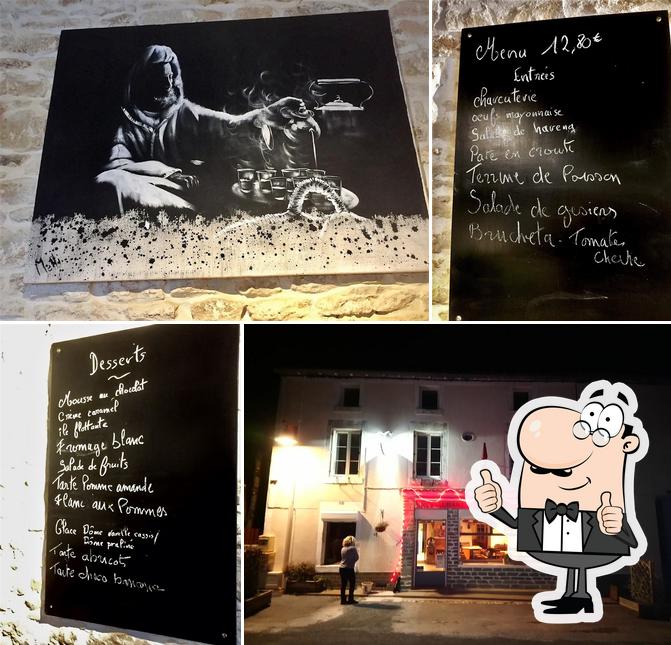 Menu 12,80€
Entrées
charcuterie
oeufs mayonnaise
Salade de hareng
Paté en croute
Terrine de Poisson
Salade de gesiers
Bruscheta - Tomate
Chevre
Desserts
Mousse au chocolat
Crème caramel
ile flottante
Fromage blanc
Salade de fruits
Tarte Pomme amande
Flanc aux Pommes
Glace Dôme vanille cassis/
Dôme praline
Tarte abricot
Tarte choco banane